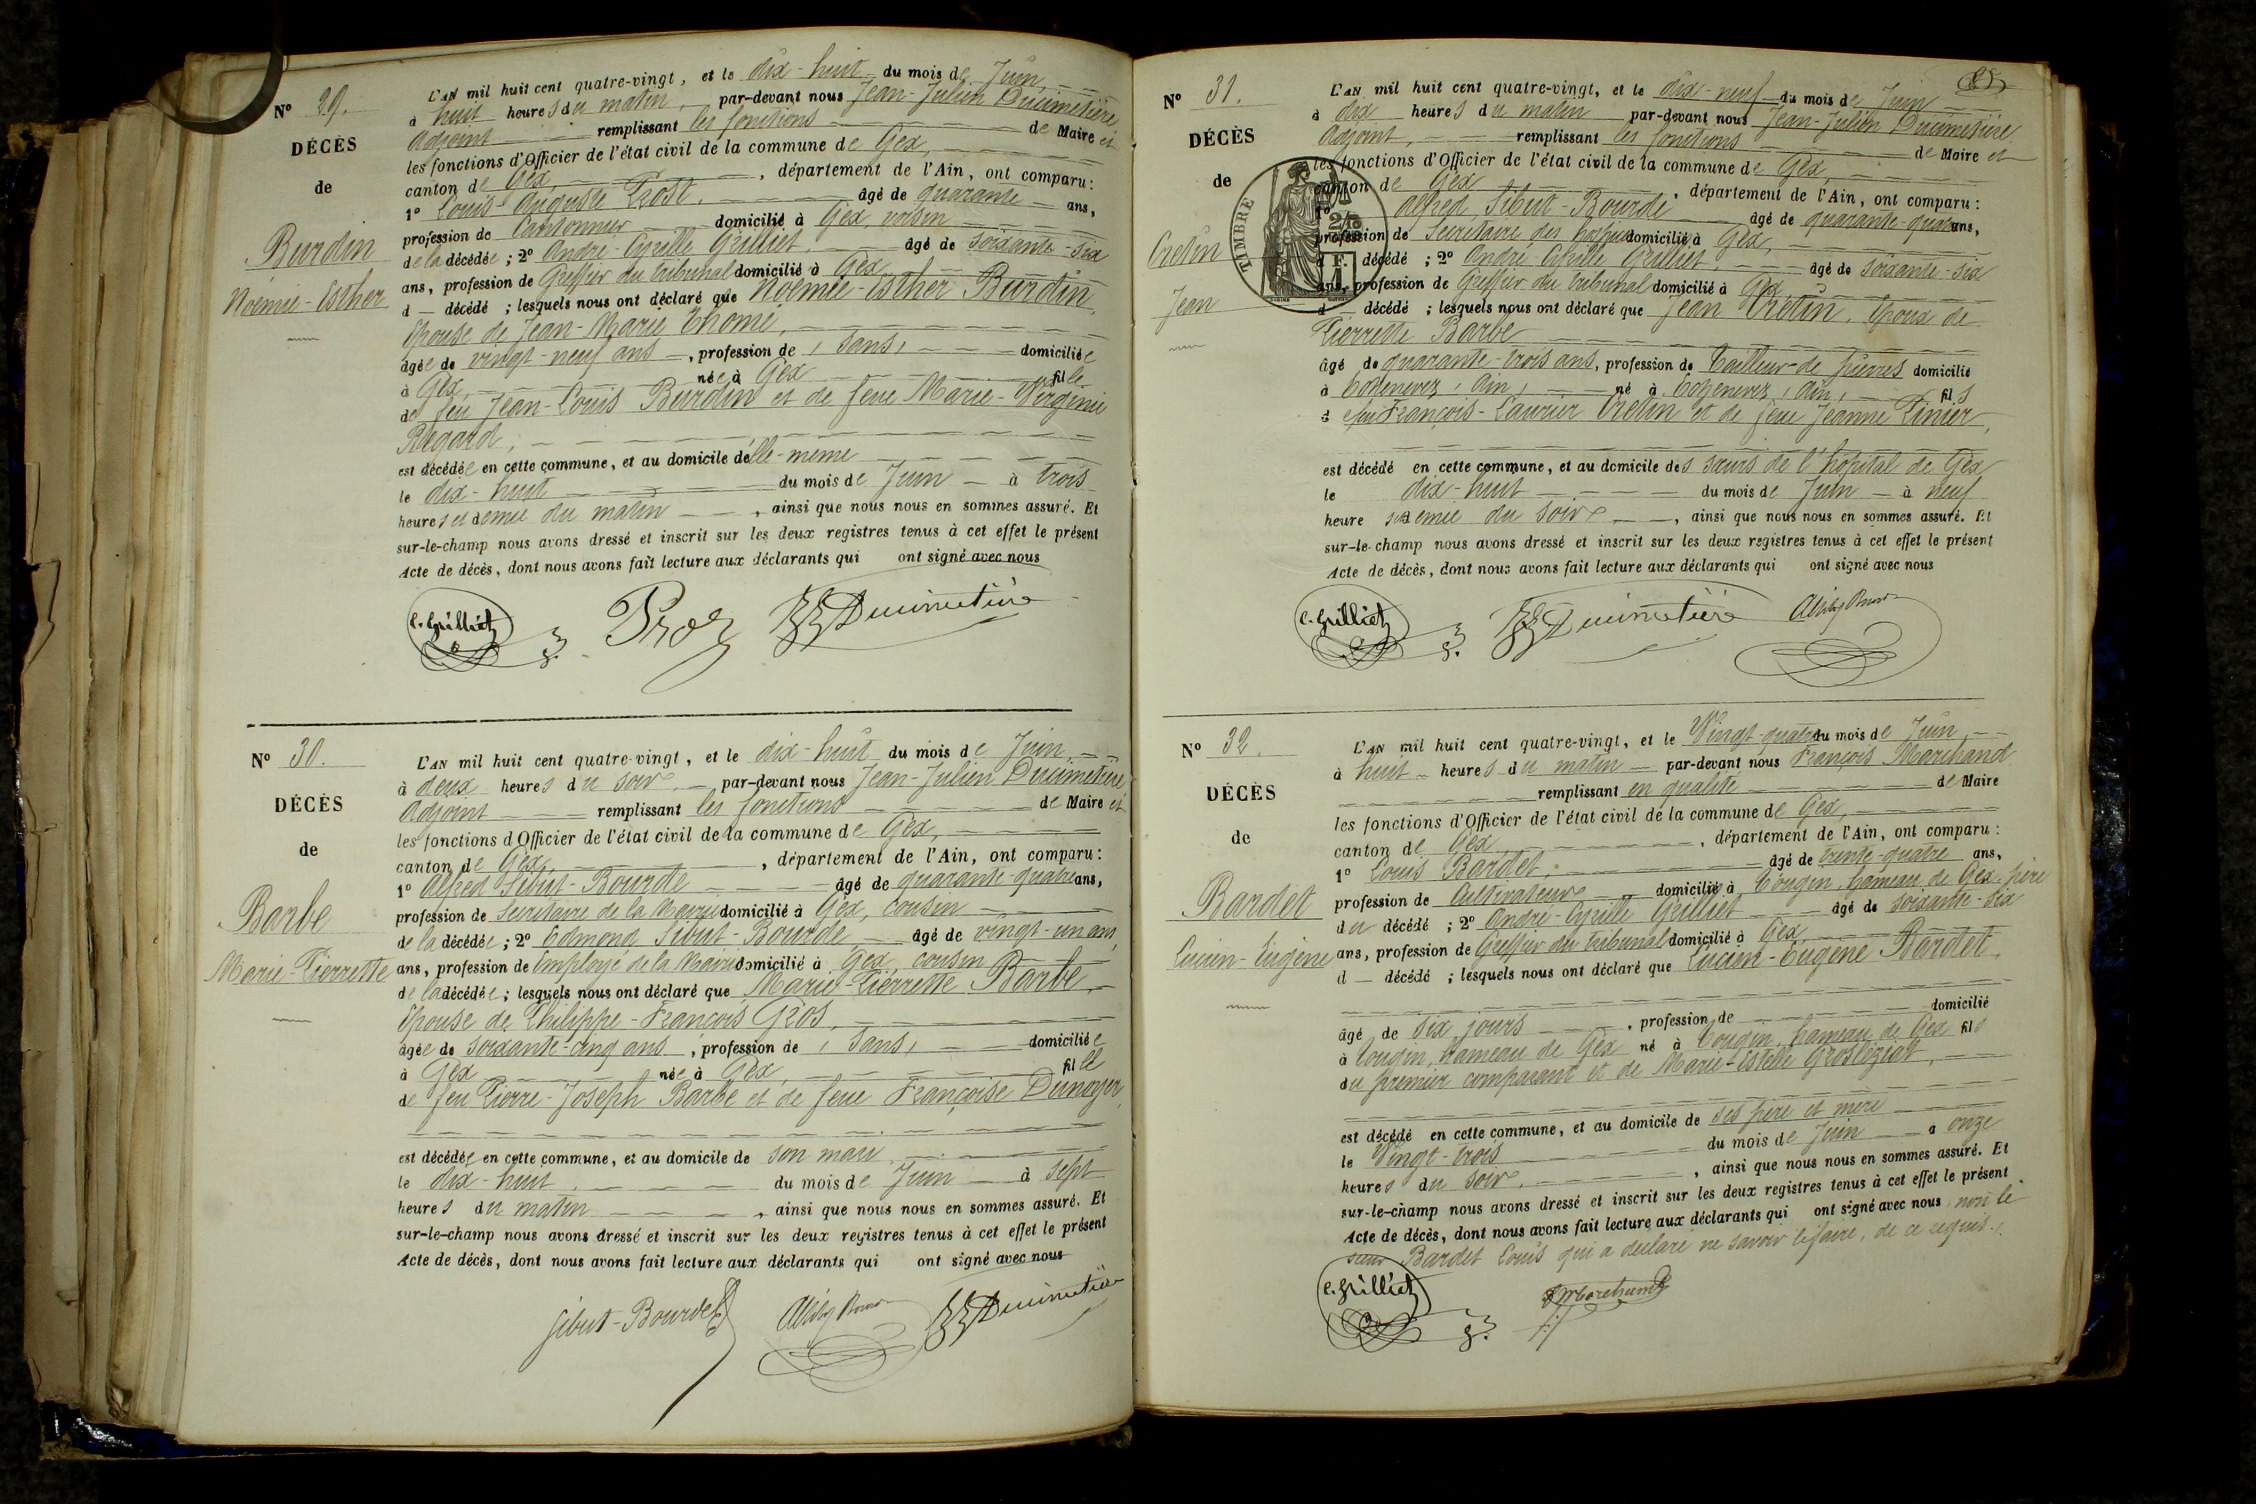 N° 29.
DÉCÈS
de
Burdin
Noémie-Esther
L'AN mil huit cent quatre-vingt, et le dix-huit du mois de Juin,
à huit heures du matin, par-devant nous Jean-Julien Ducimetière
Adjoint remplissant les fonctions de Maire et
les fonctions d'Officier de l'état civil de la commune de Gex,
canton de Gex, département de l'Ain, ont comparu :
1° Louis-Auguste Prost, âgé de quarante ans,
profession de Cantonnier domicilié à Gex, voisin
de la décédée ; 2° André-Cyrille Grilliet, âgé de soixante-six
ans, profession de Greffier du tribunal domicilié à Gex
d décédé ; lesquels nous ont déclaré que Noémie-Esther Burdin,
Epouse de Jean-Marie Thomé,
âgée de vingt-neuf ans, profession de , sans, domiciliée
à Gex, née à Gex fille
de feu Jean-Louis Burdin et de feue Marie-Virginie
Regard,
est décédée en cette commune, et au domicile d'elle-même
le dix-huit du mois de Juin à trois
heures et demie du matin, ainsi que nous nous en sommes assuré. Et
sur-le-champ nous avons dressé et inscrit sur les deux registres tenus à cet effet le présent
Acte de décès, dont nous avons fait lecture aux déclarants qui ont signé avec nous
C. Grilliet Prost JJ Ducimetière
N° 30.
DÉCÈS
de
Barbe
Marie-Pierrette
L'AN mil huit cent quatre-vingt, et le dix-huit du mois de Juin
à deux heures du soir, par-devant nous Jean-Julien Ducimetière
Adjoint remplissant les fonctions de Maire et
les fonctions d'Officier de l'état civil de la commune de Gex,
canton de Gex, département de l'Ain, ont comparu :
1° Alfred Sibut-Bourde âgé de quarante-quatre ans,
profession de Secrétaire de la Mairie domicilié à Gex, cousin
de la décédée ; 2° Edmond Sibut-Bourde, âgé de vingt-un ans
ans, profession de Employé de la Mairie domicilié à Gex, cousin
de la décédée ; lesquels nous ont déclaré que Marie-Pierrette Barbe,
Epouse de Philippe-François Gros,
âgée de soixante-cinq ans, profession de , sans, domiciliée
à Gex née à Gex, fille
de feu Pierre-Joseph Barbe et de feue Françoise Dunoyer,
est décédée en cette commune, et au domicile de son mari
le dix-huit, du mois de Juin à sept
heures du matin, ainsi que nous nous en sommes assuré. Et
sur-le-champ nous avons dressé et inscrit sur les deux registres tenus à cet effet le présent
Acte de décès, dont nous avons fait lecture aux déclarants qui ont signé avec nous
Sibut-Bourde JJ Ducimetière
25
N° 31.
DÉCÈS
de
Cretin
Jean
TIMBRE
L'AN mil huit cent quatre-vingt, et le dix-neuf du mois de Juin
à dix heures du matin par-devant nous Jean-Julien Ducimetière
Adjoint, remplissant les fonctions de Maire et
les fonctions d'Officier de l'état civil de la commune de Gex,
canton de Gex, département de l'Ain, ont comparu :
1° Alfred Sibut-Bourde âgé de quarante-quatre ans,
profession de Secrétaire des hospices domicilié à Gex,
d décédé ; 2° André-Cyrille Grilliet, âgé de soixante-six
ans, profession de Greffier du tribunal domicilié à Gex
d décédé ; lesquels nous ont déclaré que Jean Cretin, époux de
Pierrette Barbe
âgé de quarante-trois ans, profession de tailleur de pierres domicilié
à Cogenevez, Ain, né à Cogenevez, Ain, fils
de feu François-Laurier Cretin et de feue Jeanne Pinier,
est décédé en cette commune, et au domicile des sœurs de l'hôpital de Gex
le dix-huit du mois de Juin à neuf
heure et demie du soir, ainsi que nous nous en sommes assuré. Et
sur-le-champ nous avons dressé et inscrit sur les deux registres tenus à cet effet le présent
Acte de décès, dont nous avons fait lecture aux déclarants qui ont signé avec nous
C. Grilliet JJ Ducimetière
N° 32.
DÉCÈS
de
Bardet
Lucien-Eugène
L'AN mil huit cent quatre-vingt, et le Vingt-quatre du mois de Juin
à huit heures du matin par-devant nous François Marchand
remplissant en qualité de Maire
les fonctions d'Officier de l'état civil de la commune de Gex,
canton de Gex, département de l'Ain, ont comparu :
1° Louis Bardet, âgé de trente-quatre ans,
profession de Cultivateur domicilié à Tougin, hameau de Gex, père
du décédé ; 2° André-Cyrille Grilliet âgé de soixante-six
ans, profession de Greffier du tribunal domicilié à Gex
d décédé ; lesquels nous ont déclaré que Lucien-Eugène Bardet,
âgé de six jours, profession de domicilié
à Tougin, hameau de Gex né à Tougin, hameau de Gex fils
du premier comparant et de Marie-Estelle Grosléziat,
est décédé en cette commune, et au domicile de ses père et mère
le Vingt-trois du mois de Juin à onze
heures du soir, ainsi que nous nous en sommes assuré. Et
sur-le-champ nous avons dressé et inscrit sur les deux registres tenus à cet effet le présent
Acte de décès, dont nous avons fait lecture aux déclarants qui ont signé avec nous, non le
sieur Bardet Louis qui a déclaré ne savoir le faire, de ce requis.
C. Grilliet F Marchand